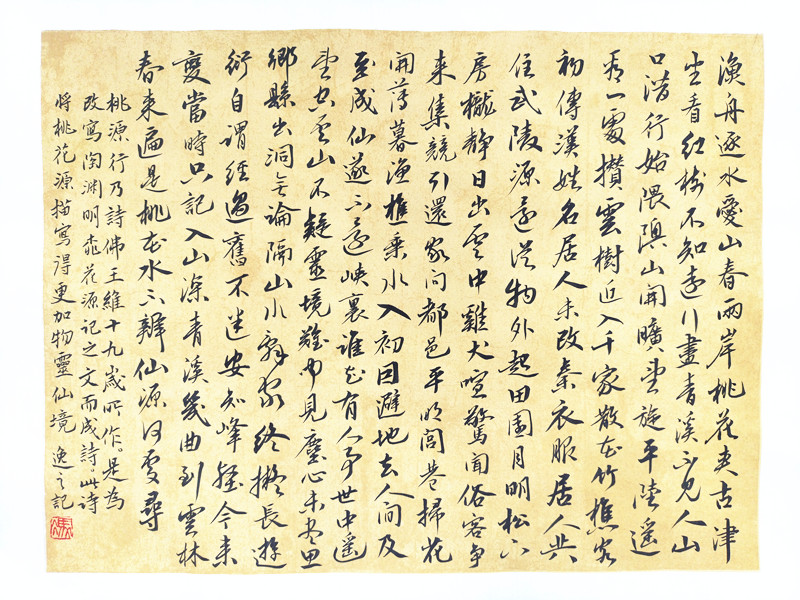 漁舟逐水愛山春兩岸桃花夾古津
坐看紅樹不知遠行盡青溪不見人山
口潛行始隈隩山開曠望旋平陸遙
看一處攢雲樹近入千家散花竹樵客
初傳漢姓名居人未改秦衣服居人共
住武陵源還從物外起田園月明松下
房櫳靜日出雲中雞犬喧驚聞俗客爭
來集競引還家問都邑平明閭巷掃花
開薄暮漁樵乘水入初因避地去人間及
至成仙遂不還峽裏誰知有人事世中遙
望空雲山不疑靈境難聞見塵心未盡思
鄉縣出洞無論隔山水辭家終擬長遊
衍自謂經過舊不迷安知峰壑今來
變當時只記入山深青溪幾曲到雲林
春來遍是桃花水不辨仙源何處尋
桃源行乃詩佛王維十九歲所作。是為
改寫陶淵明桃花源記之文而成詩。此詩
將桃花源描寫得更加物靈仙境 逸之記